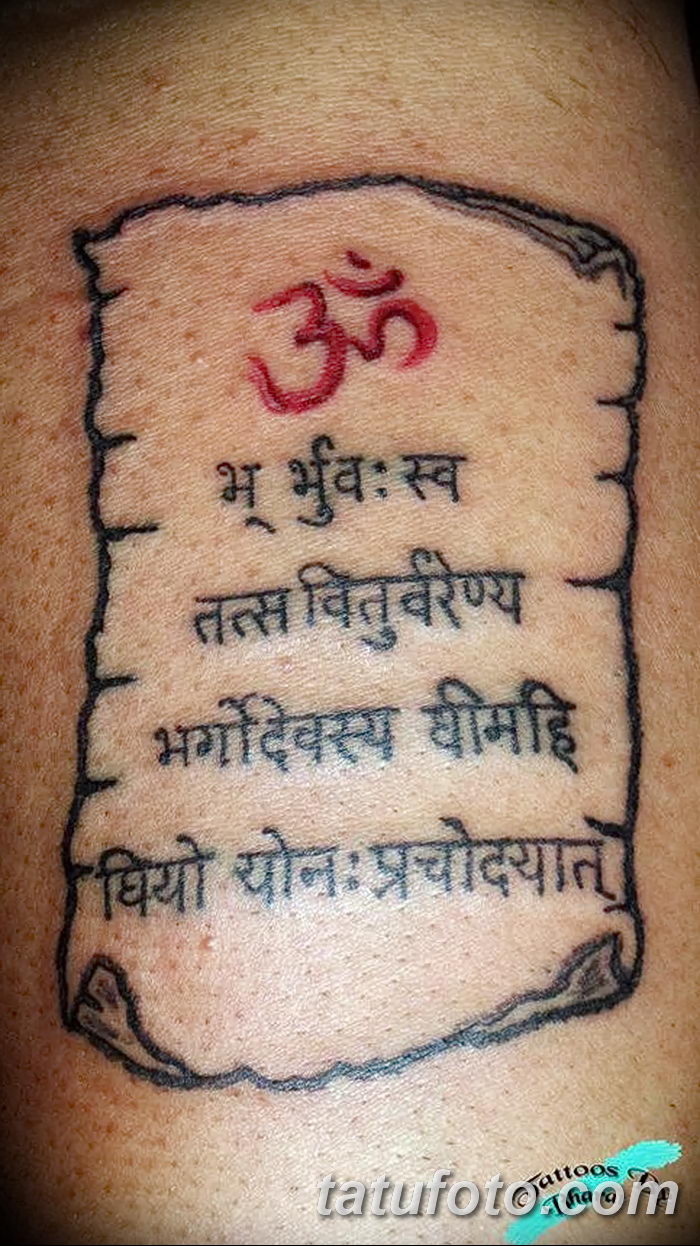 ॐ
भ् र्भुवः स्व
तत्स वितुर्वरेण्य
भर्गोदेवस्य घीमहि्
घियो योनः प्रचोदयात्
Tattoos
tatufoto.com